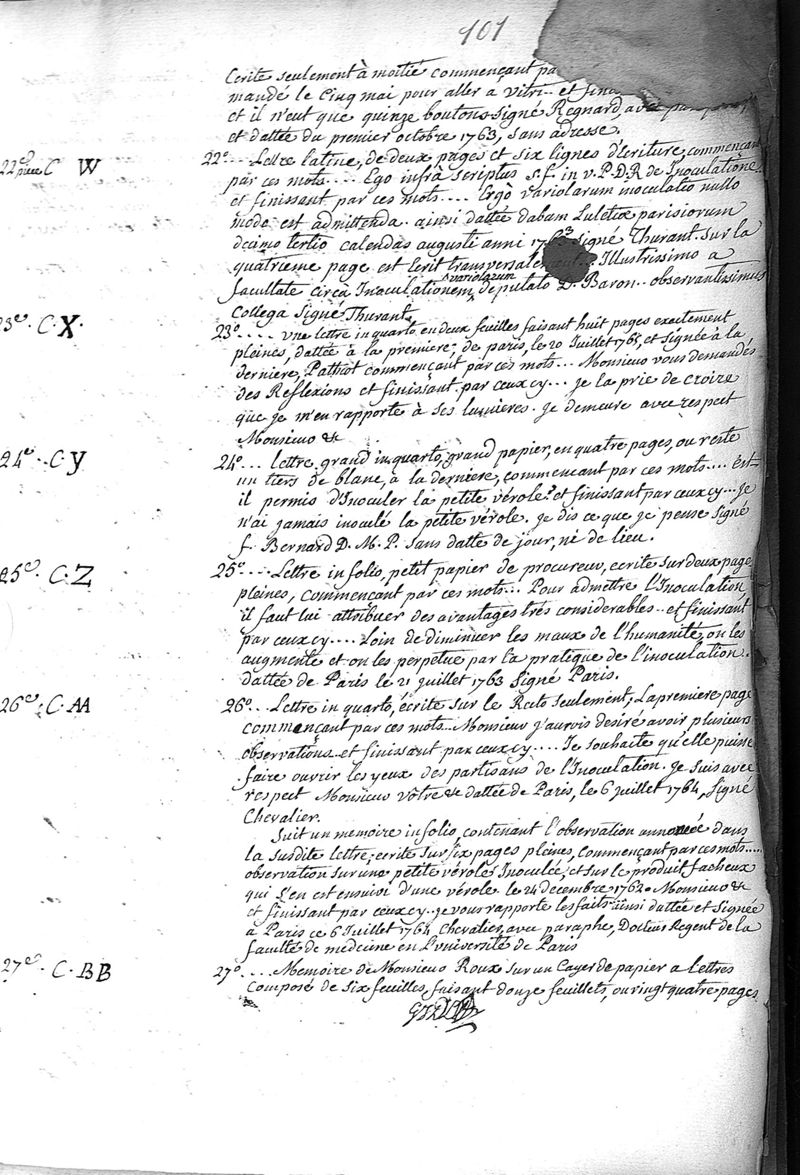 101
Ecrite seulement à moitié commençant pa
mandé le Cinq mai pour aller a vitri.. et fin
et il n'eut que quinze boutons signé Regnard, avec par
et dattée du premier octobre 1763, sans adresse.
22e piece C W
22º... Lettre latine, de deux pages et six lignes d'Ecriture, commençant
par ces mots.... Ego infra scriptus s.f. in v. P.D.R de Inoculatione
et finissant par ces mots.... Ergò variolarum inoculatio nullo
modo est admittenda. ainsi dattée dabam Lutetiæ parisiorum
decimo tertio calendas augusti anni 1763 signé Thurant. sur la
quatrieme page est Ecrit transversalement.. Illustrissimo a
facultate circà Inoculationem variolarum deputato D. Baron.. observantissimus
Collega Signé Thurant.
23e. C. X.
23º.... une lettre in quarto, en deux feuilles faisant huit pages exactement
pleines, dattée à la premiere de paris, le 20 Juillet 1765, et signée à la
derniere, Pathiot commençant par ces mots... Monsieur vous demandés
des Reflexions et finissant par ceux cy... je la prie de croire
que je m'en rapporte à ses lumieres. je demeure avec respect
Monsieur &
24e.. C. Y
24º... lettre grand in quarto, grand papier, en quatre pages, ou reste
un tiers de blanc, à la derniere, commencant par ces mots.... Est-
il permis d'Inoculer la petite vérole? et finissant par ceux cy... Je
n'ai jamais inoculé la petite vérole. je dis ce que je pense signé
f. Bernard D. M. P. sans datte de jour, ni de lieu.
25e. C. Z
25º.... Lettre in folio, petit papier de procureur, ecrite sur deux pages
pleines, commencant par ces mots... Pour admettre l'Inoculation
il faut lui attribuer des avantages très considerables.. et finissant
par ceux cy.... Loin de diminuer les maux de l'humanité, on les
augmente et on les perpetue par la pratique de l'inoculation.
dattée de Paris le 21 juillet 1763 signé Paris.
26e. C. AA
26º... Lettre in quarto, écrite sur le Recto seulement, La premiere page
commençant par ces mots.. Monsieur j'aurois desiré avoir plusieurs
observations.. et finissant par ceux cy.... Je souhaite qu'elle puisse
faire ouvrir les yeux des partisans de l'Inoculation. je suis avec
respect Monsieur vôtre &c dattée de Paris, le 6 juillet 1764, signé
Chevalier.
Suit un memoire in folio, contenant l'observation annoncée dans
la susdite lettre, ecrite sur six pages pleines, Commençant par ces mots.....
observation sur une petite vérole Inoculée, et sur le produit facheux
qui s'en est ensuivi d'une vérole. le 24 decembre 1762. Monsieur &c
et finissant par ceux cy.. je vous rapporte les faits ainsi dattée et Signée
à Paris ce 6 Juillet 1764 Chevalier, avec paraphe, Docteur Regent de la
faculté de medecine en L'université de Paris
27e. C. BB
27º.... Memoire de Monsieur Roux sur un Cayer de papier a lettres
Composé de six feuilles, faisant douze feuillets, ou vingt quatre pages